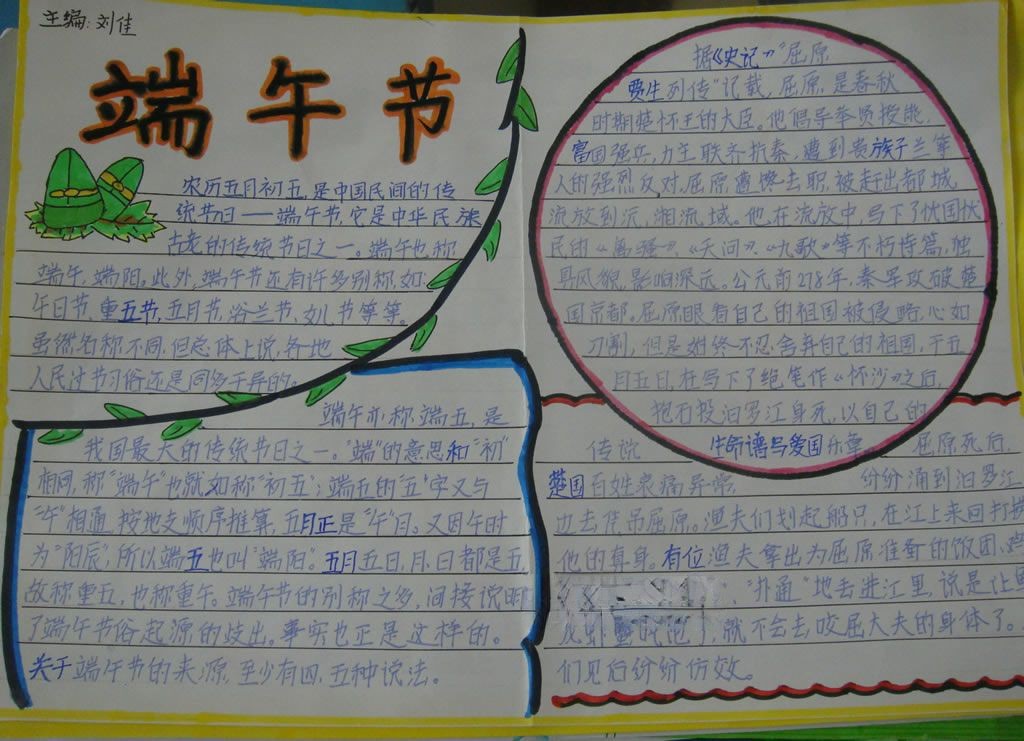 主编:刘佳
端午节
农历五月初五,是中国民间的传
统节日——端午节,它是中华民族
古老的传统节日之一。端午也称
端午,端阳。此外,端午节还有许多别称,如:
午日节,重五节,五月节,浴兰节,女儿节等等。
虽然名称不同,但总体上说,各地
人民过节习俗还是同多于异的。
端午亦称端五,是
我国最大的传统节日之一。“端”的意思和“初”
相同,称“端午”也就如称“初五”;端五的“五”字又与
“午”相通,按地支顺序推算,五月正是“午”月。又因午时
为“阳辰”,所以端五也叫“端阳”。五月五日,月、日都是五,
故称重五,也称重午。端午节的别称之多,间接说明
了端午节俗起源的歧出。事实也正是这样的。
关于端午节的来源,至少有四、五种说法。
据《史记》“屈原
贾生列传”记载,屈原,是春秋
时期楚怀王的大臣。他倡导举贤授能,
富国强兵,力主联齐抗秦,遭到贵族子兰等
人的强烈反对,屈原遭馋去职,被赶出都城,
流放到沅,湘流域。他在流放中,写下了忧国忧
民的《离骚》、《天问》、《九歌》等不朽诗篇,独
具风貌,影响深远。公元前278年,秦军攻破楚
国京都。屈原眼看自己的祖国被侵略,心如
刀割,但是始终不忍舍弃自己的祖国,于五
月五日,在写下了绝笔作《怀沙》之后,
抱石投汨罗江身死,以自己的
生命谱写爱国乐章。
传说 屈原死后,
楚国百姓哀痛异常, 纷纷涌到汨罗江
边去凭吊屈原。渔夫们划起船只,在江上来回打捞
他的真身。有位渔夫拿出为屈原准备的饭团、鸡
“扑通”地丢进江里,说是让鱼
吃饱了,就不会去咬屈大夫的身体了。
们见后纷纷仿效。